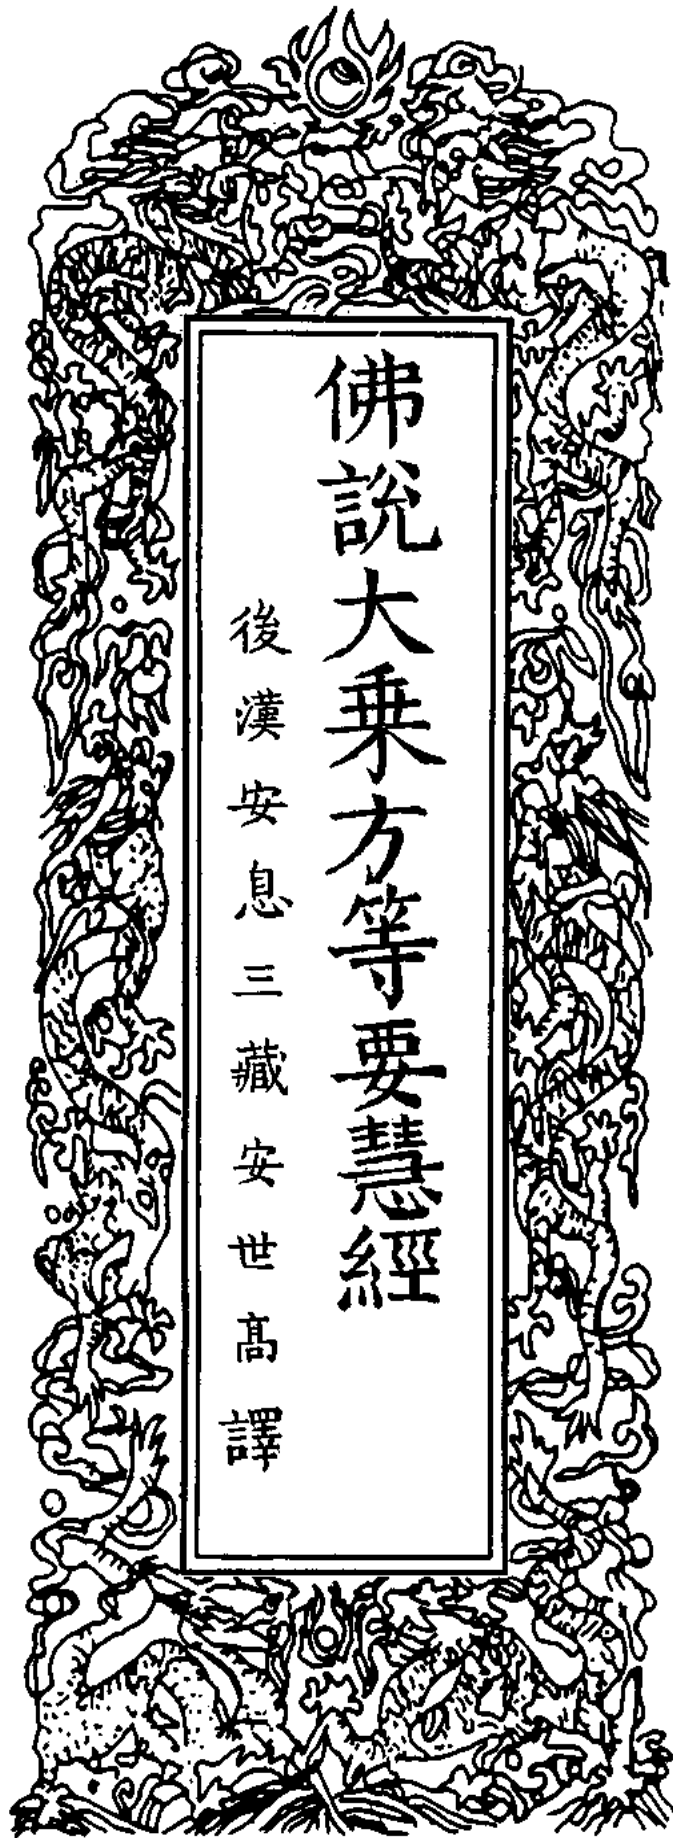 佛說大乗方等要慧經
後漢安息三藏安世髙譯